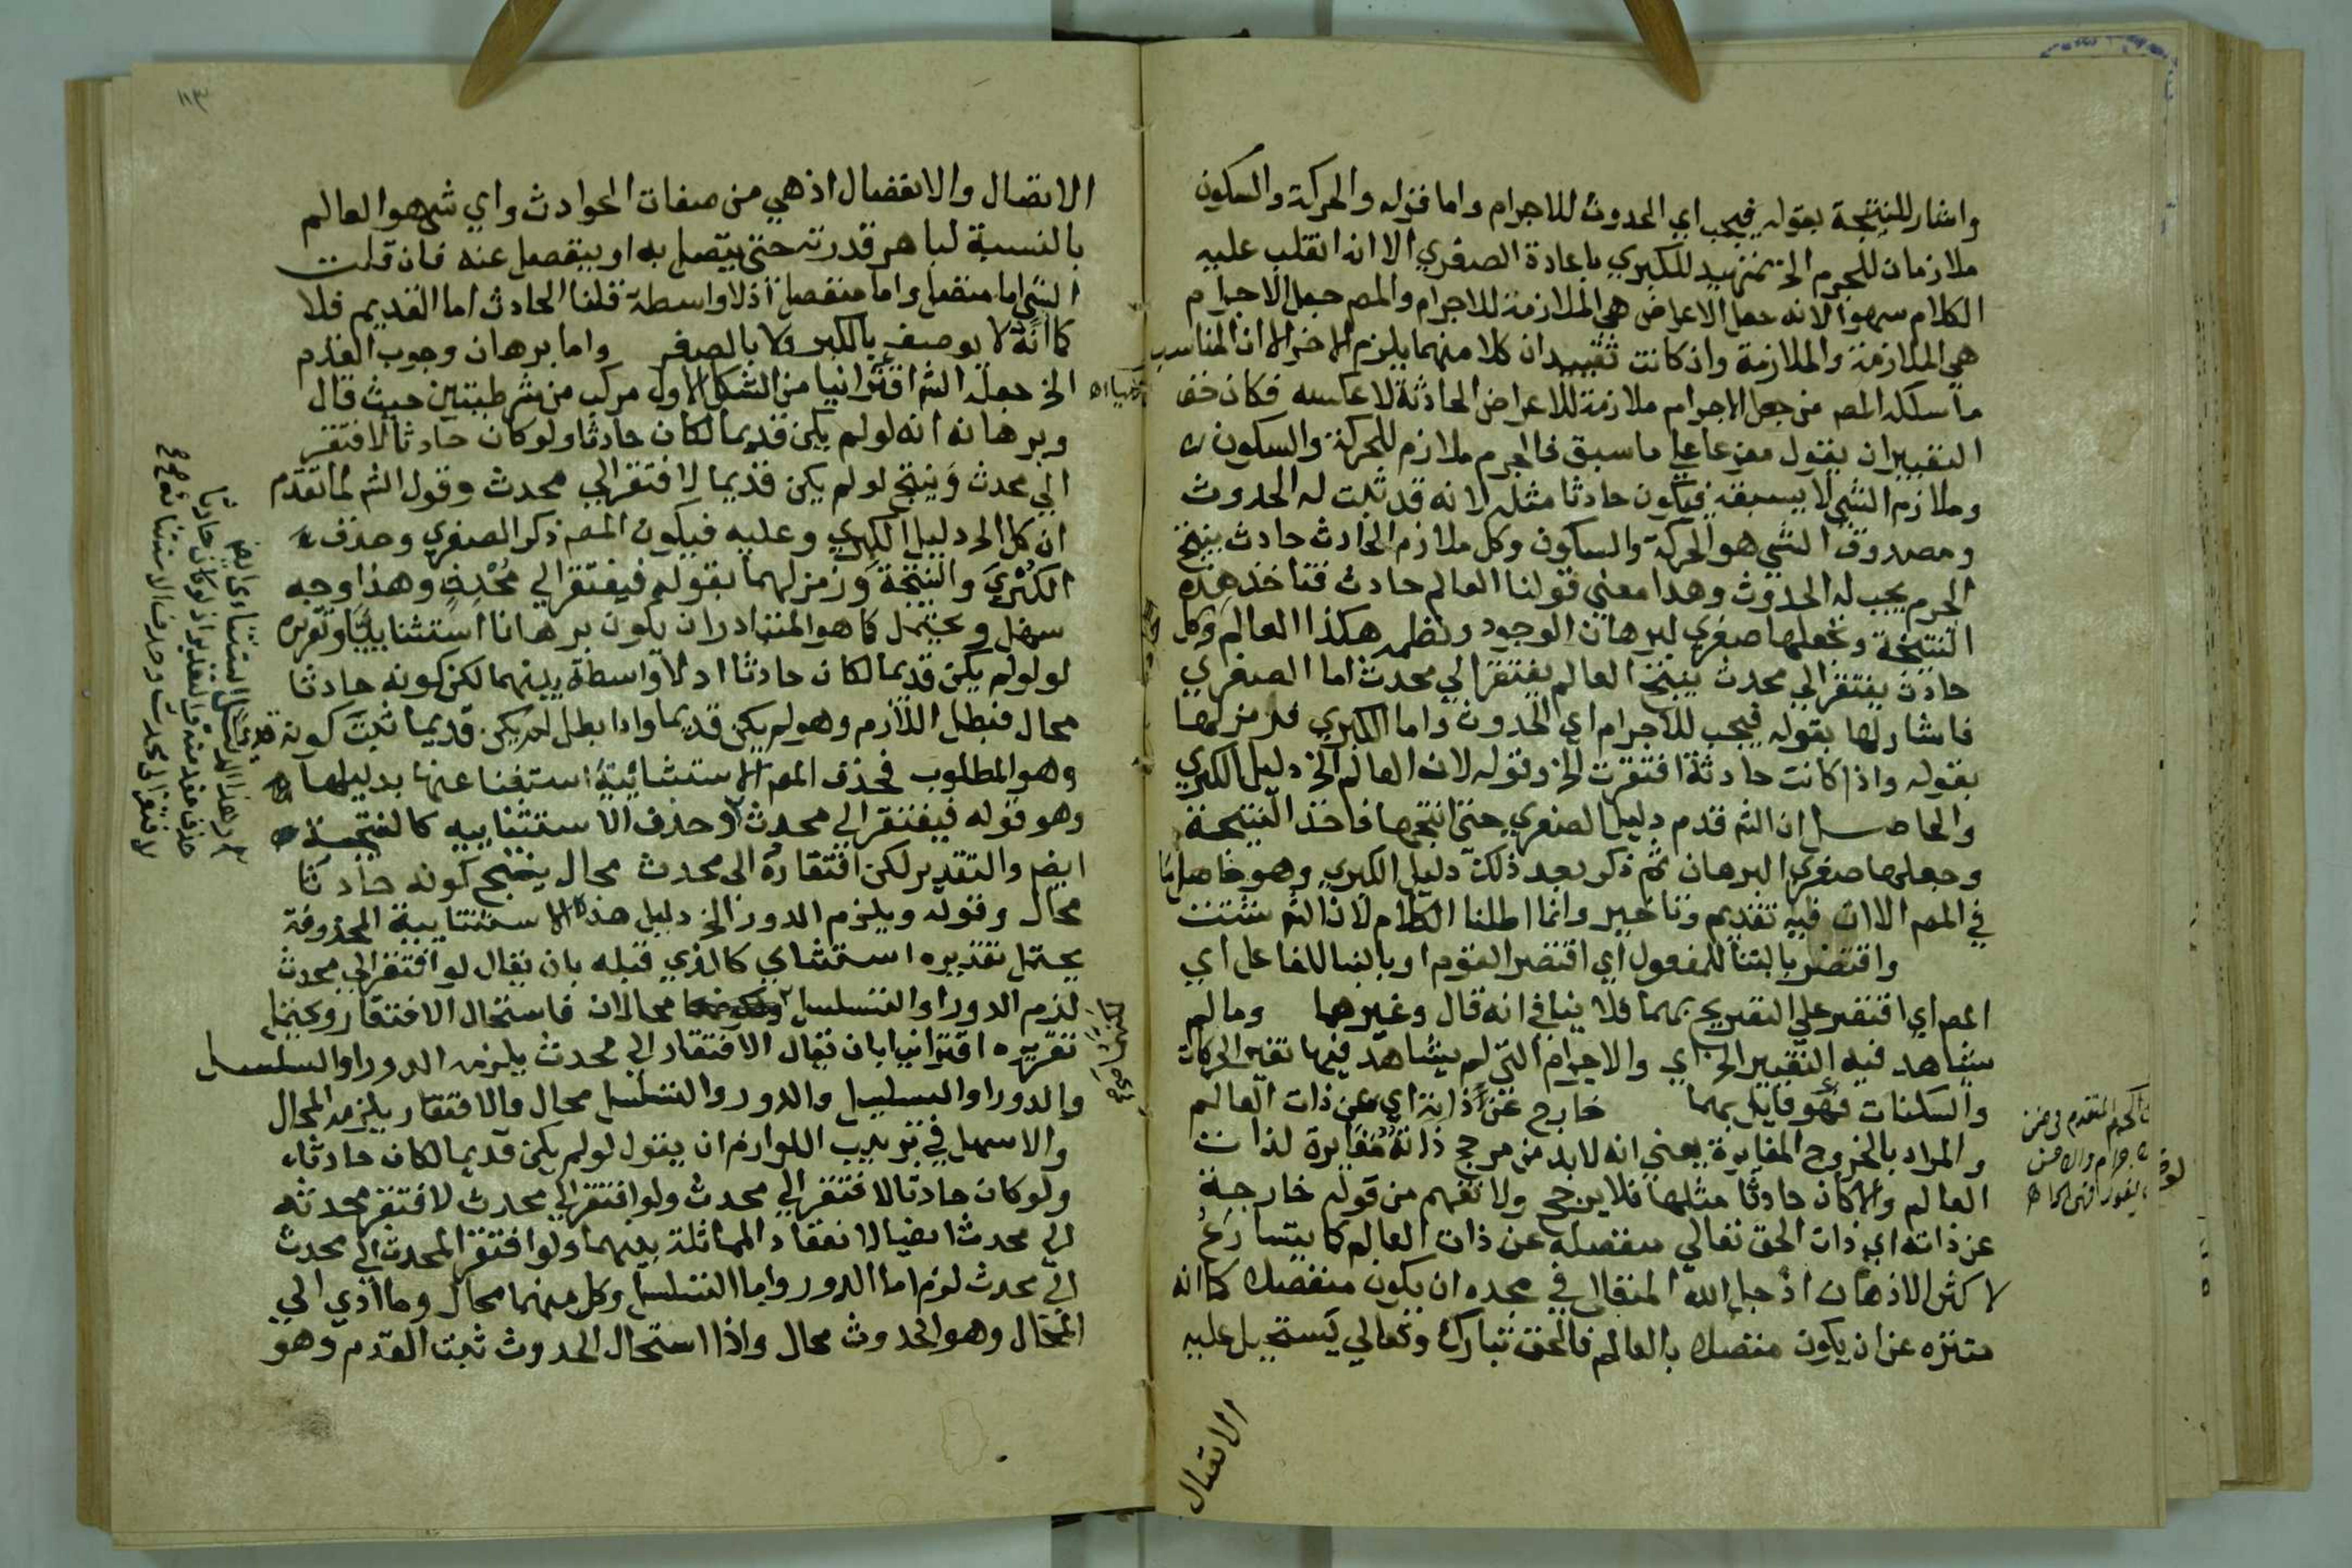 واشار للنتيجة بقوله فيجب اي الحدوث للاجرام واما قوله والحركة والسكون
ملازمان للجرم الخ تمهيد للكبري باعادة الصغري الا انه انقلب عليه
الكلام سهوا لانه جعل الاعراض هي الملازمة للاجرام والمص جعل الاجرام
هي الملازمة والملازمة وان كانت تقيد ان كلا منهما يلزم الاخر الا ان المناسب
ما سلكه المص من جعل الاجرام ملازمة للاعراض الحادثة لا عكسه فكان حق
التعبير ان يقول مفرعا علي ما سبق فالجرم ملازم للحركة والسكون
وملازم الشي لا يسبقه فيكون حادثا مثله لانه قد ثبت له الحدوث
ومصدوق الشي هو الحركة والسكون وكل ملازم الحادث حادث ينتج
الجرم يجب له الحدوث وهذا معني قولنا العالم حادث فتاخذ هذه
النتيجة وتجعلها صغري لبرهان الوجود ونظمه هكذا العالم وكل
حادث يفتقر الي محدث ينتج العالم يفتقر الي محدث اما الصغري
فاشار لها بقوله فيجب للاجرام اي الحدوث واما الكبري فرمز لها
بقوله واذا كانت حادثة افتقرت الخ وقوله لان العالم الخ دليل الكبري
والحاصل ان الش قدم دليل الصغري حتي انتجها فاخذ النتيجة
وجعلها صغري البرهان ثم ذكر بعد ذلك دليل الكبري وهو حاصل ما
في المص الا ان فيه تقديم وتاخير وانما اطلنا الكلام لان الش شتت
واقتصر بالبنا للمفعول اي اقتصر القوم او بالبنا للفاعل اي
المص اي اقتصر علي التصريح بهما فلا ينافي انه قال وغيرهما وما لم
يشاهد فيه التغيير الخ اي والاجرام التي لم يشاهد فيها تغير الحركات
والسكنات فهو قابل بهما خارج عن ذاته اي عن ذات العالم
والمراد بالخروج المغايرة يعني انه لا بد من مرجح ذاته مغايرة لذات
العالم والا كان حادثا مثلها فلا يرجح ولا تفهم من قوله خارجة
عن ذاته اي ذات الحق تعالي منفصلة عن ذات العالم كما يتسارع
لاكثر الاذهان اذ جل الله المتعال في مجده ان يكون منفصلا كما انه
متنزه عن ان يكون متصلا بالعالم فالحق تبارك وتعالي يستحيل عليه
الاتصال
١١٣
الاتصال والانفصال اذ هي من صفات الحوادث واي شي هو العالم
بالنسبة لباهر قدرته حتي يتصل به او ينفصل عنه فان قلت
الشي اما متصل واما منفصل اذ لا واسطة قلنا الحادث اما القديم فلا
كما انه لا يوصف بالكبر ولا بالصغر واما برهان وجوب القدم
الخ جعله الش اقترانيا من الشكل الاول مركب من شرطيتين حيث قال
وبرهانه انه لو لم يكن قديما لكان حادثا ولو كان حادثا لافتقر
الي محدث وينتج لو لم يكن قديما لافتقر الي محدث وقول الش لما تقدم
ان كل الخ دليل الكبري وعليه فيكون المص ذكر الصغري وحذف
الكبري والنتيجة ورمز لهما بقوله فيفتقر الي محدث وهذا وجه
سهل ويحتمل كما هو المتبادر ان يكون برهانا استثنائيا وتقريره
لو لم يكن قديما لكان حادثا اذ لا واسطة بينهما لكن كونه حادثا
محال فبطل اللازم وهو لم يكن قديما واذا بطل لم يكن قديما ثبت كونه قديما
وهو المطلوب فحذف المص الاستثنائية استغنا عنها بدليلها
وهو قوله فيفتقر الي محدث وحذف الاستثنائيه كالنتيجة
ايض والتقدير لكن افتقاره الي محدث محال ينتج كونه حادثا
محال وقوله ويلزم الدور الخ دليل هذه الاستثنائية المحذوفة
يحتمل تقديره استثنائي كالذي قبله بان يقال لو افتقر الي محدث
لزم الدور او التسلسل محالان فاستحال الافتقار ويحتمل
تقريره اقترانيا بان يقال الافتقار الي محدث يلزمه الدور او التسلسل
والدور او التسلسل والدور والتسلسل محال والافتقار يلزمه المحال
والاسهل في ترتيب اللوازم ان يقول لو لم يكن قديما لكان حادثا
ولو كان حادثا لافتقر الي محدث ولو افتقر الي محدث لافتقر محدثه
الي محدث ايضا لانعقاد المماثلة بينهما ولو افتقر المحدث الي محدث
الي محدث لزم اما الدور واما التسلسل وكل منهما محال وما ادي الي
المحال وهو الحدوث محال واذا استحال الحدوث ثبت القدم وهو